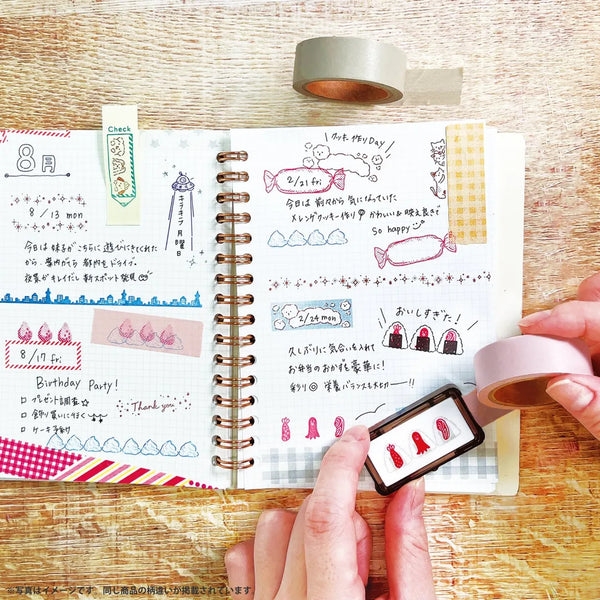 Check
8月
8/13 mon
今日は妹子がこちらに遊びにきてくれた
から、都内をドライブ。
夜景がキレイだし新スポット発見
キラキラ月曜日
8/17 fri
Birthday Party!
□ プレゼント調査☆
□ 飾り買いに行く
□ ケーキ予約
Thank you
クッキー作りDay
2/21 fri
今日は前々から気になっていた
メレンゲクッキー作り かわいい&映え良きで
So happy
2/24 mon
おいしすぎた!
久しぶりに気合いを入れて
お弁当のおかずを豪華に!
彩り◎ 栄養バランスも大切ーー!!
※写真はイメージです。同じ商品の柄違いが掲載されています。